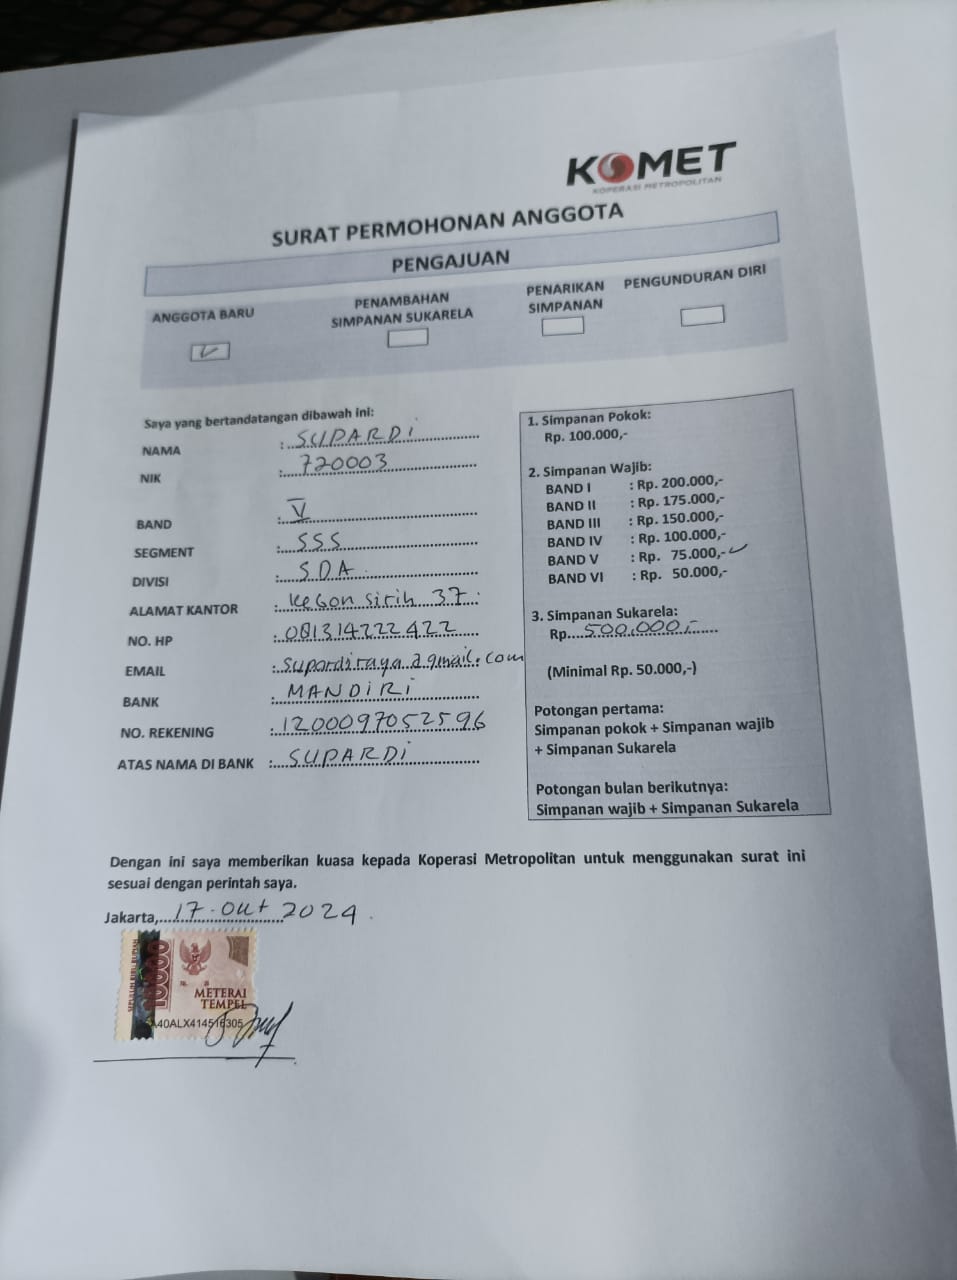 KOMET
KOPERASI METROPOLITAN
SURAT PERMOHONAN ANGGOTA
PENGAJUAN
ANGGOTA BARU
PENAMBAHAN
SIMPANAN SUKARELA
PENARIKAN
SIMPANAN
PENGUNDURAN DIRI
Saya yang bertandatangan dibawah ini:
NAMA : SUPARDI
NIK : 720003
BAND : V
SEGMENT : SSS
DIVISI : SDA
ALAMAT KANTOR : Kebon Sirih 37
NO. HP : 081314222422
EMAIL : supardiraya@gmail.com
BANK : MANDIRI
NO. REKENING : 1200097052596
ATAS NAMA DI BANK : SUPARDI
1. Simpanan Pokok:
Rp. 100.000,-
2. Simpanan Wajib:
BAND I : Rp. 200.000,-
BAND II : Rp. 175.000,-
BAND III : Rp. 150.000,-
BAND IV : Rp. 100.000,-
BAND V : Rp. 75.000,-
BAND VI : Rp. 50.000,-
3. Simpanan Sukarela:
Rp. 500.000,-
(Minimal Rp. 50.000,-)
Potongan pertama:
Simpanan pokok + Simpanan wajib
+ Simpanan Sukarela
Potongan bulan berikutnya:
Simpanan wajib + Simpanan Sukarela
Dengan ini saya memberikan kuasa kepada Koperasi Metropolitan untuk menggunakan surat ini
sesuai dengan perintah saya.
Jakarta, 17 Okt 2024
10000
METERAI
TEMPEL